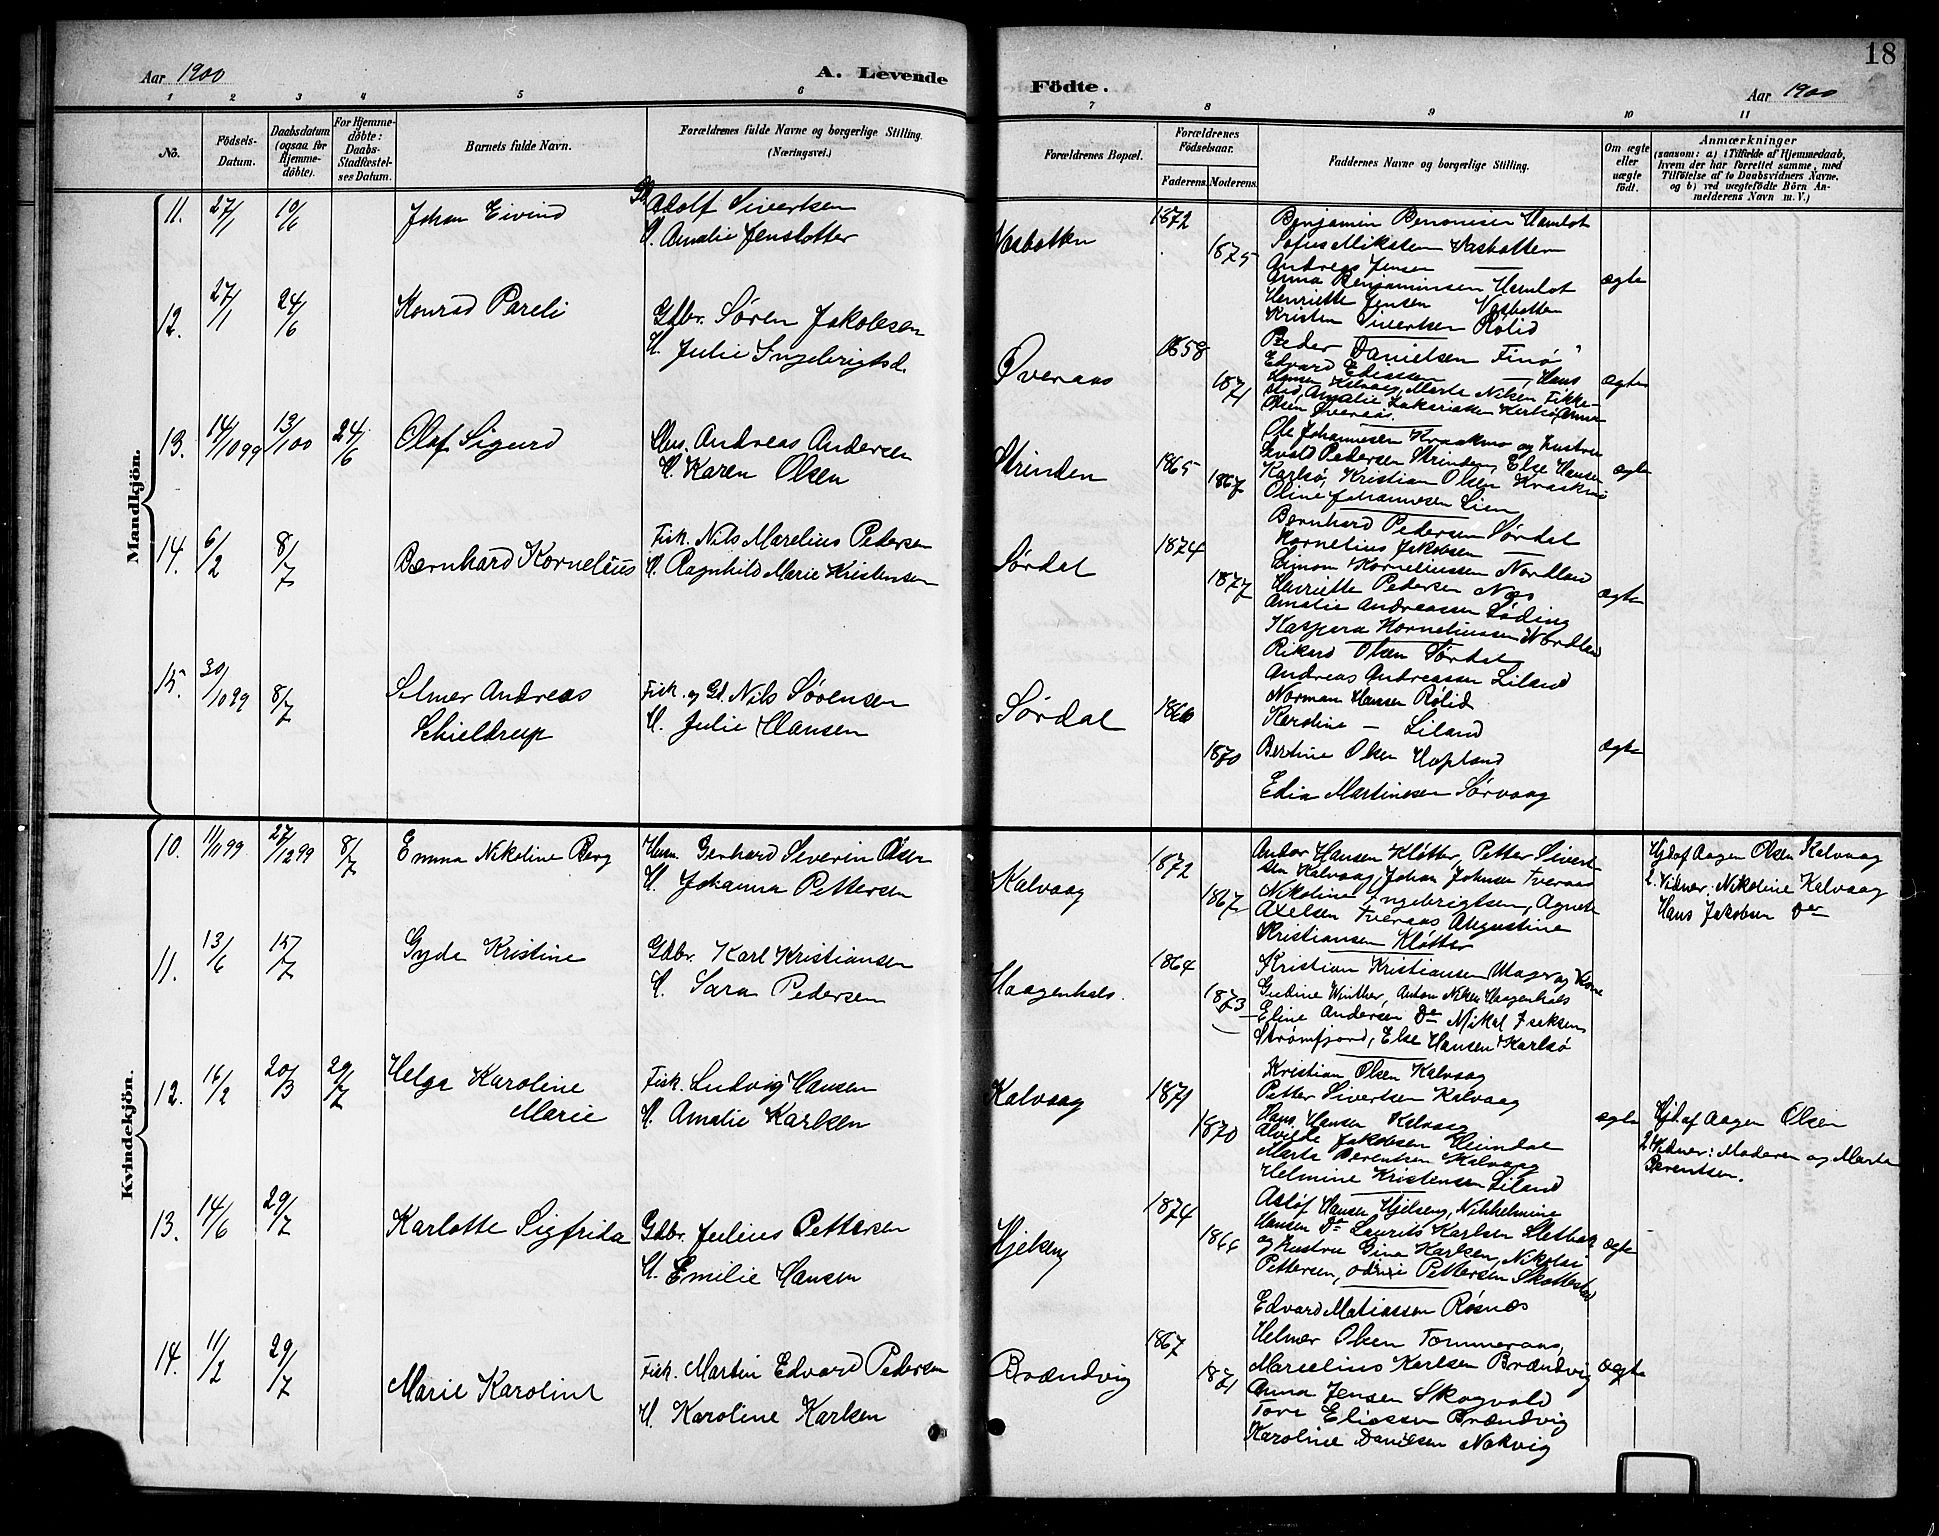 18
Aar 1900
A. Levende
Födte.
Aar 1900
1 2 3 4 5 6 7 8 9 10 11
No.
Födsels-
Datum.
Daabsdatum
(ogsaa for
Hjemme-
döbte).
For Hjemme-
döbte:
Daabs-
Stadfæstel-
ses Datum.
Barnets fulde Navn.
Forældrenes fulde Navne og borgerlige Stilling.
(Næringsvei.)
Forældrenes Bopæl.
Forældrenes
Födselsaar.
Faderens. Moderens.
Faddernes Navne og borgerlige Stilling.
Om ægte
eller
uægte
födt.
Anmærkninger
(saasom: a) i Tilfælde af Hjemmedaab,
hvem der har forrettet samme, med
Tilföielse af to Daabsvidners Navne,
og b) ved uægtefödte Börn An-
melderens Navn m. V.)
Mandkjön.
11. 27/1 19/6 Johan Eivind
Adolf Sivertsen
H. Amalie Jenslotter
Vasbotten 1872
1875
Benjamin Benonisen Hamlot
Sofus Mikalsen Vasbotten
Andreas Jensen —
Anna Benjaminsen Hamlot
Henriette Jensen Vasbotten
Kristen Sivertsen Rolid
ægte
12. 27/1 24/6 Konrad Pareli
Gdbr. Søren Jakobsen
H. Julie Ingebrigtsd.
Øveraas 1858
1871
Peder Danielsen Finø
Edvard Eliassen — Hans
Hansen Kalvaag, Marte Nilsen Fikke-
stad, Amalie Zakariasen Karlsø, Anna
Olsen Øveraas.
ægte
13. 14/10 99 13/1 00 24/6 Olaf Sigurd
Hus. Andreas Andersen
H. Karen Olsen
Strinden 1865
1867
Ole Johannesen Kraakmo og hustru
Evald Pedersen Strinden, Else Hansen
Karlsø, Kristian Olsen Kraakmo
Oline Johannesen Lien
ægte
14. 6/2 8/7 Bernhard Kornelius
Fisk. Nils Marelius Pedersen
H. Ragnhild Marie Kristensen
Sørdal 1874
1877
Bernhard Pedersen Sørdal
Kornelius Jakobsen —
Simon Korneliussen Nordland
Henriette Pedersen Næs
Amalie Andreassen Løding
Kaspara Korneliussen Nordland
ægte
15. 30/10 99 8/7 Selmer Andreas
Schieldrup
Fisk. og Gd. Nils Sørensen
H. Julie Hansen
Sørdal 1866
1870
Rikard Olsen Sørdal
Andreas Andreassen Liland
Norman Hansen Rolid
Karoline — Liland
Bertine Olsen Hopland
Edia Martinesen Sørvaag
ægte
Kvindekjön.
10. 11/11 99 27/12 99 8/7 Emma Nikoline Berg
Husm. Gerhard Severin Olsen
H. Johanna Pettersen
Kalvaag 1872
1867
Andor Hansen Kløtter, Petter Sivert-
sen Kalvaag, Johan Johnsen Tveraas
Nikoline Ingebrigtsen, Agnete
Axelsen Tveraas, Augustine
Kristiansen Kløtter
Hjd. af Aagen Olsen Kalvaag
2. Vidner: Nikoline Kalvaag
Hans Jakobsen Do
11. 13/6 15/7 Gyda Kristine
Gdbr. Karl Kristiansen
H. Sara Pedersen
Haagenhals. 1864
1873
Kristian Kristiansen Mager og Kone
Gudine Winther, Anton Nilsen Haagenhals
Eline Andersen Do Mikal Isaksen
Strømfjord, Else Hansen Karlsø
12. 16/2 20/3 29/7 Helga Karoline
Marie
Fisk. Ludvig Hansen
H. Amalie Karlsen
Kalvaag 1871
1870
Kristian Olsen Kalvaag
Petter Sivertsen Kalvaag
Hans Hansen Kalvaag
Alvilde Jakobsen Heimdal
Marta Berentsen Kalvaag
Helmine Kristensen Liland
ægte
Hjd. af Aagen Olsen
2. Vidner: Moderen og Marta
Berentsen.
13. 14/6 29/7 Karlotte Sigfrida
Gdbr. Julius Pettersen
H. Emilie Hansen
Hjelseng 1874
1866
Asløf Hansen Hjelseng, Nikkelmine
Hansen Do Laurits Karlsen Sletbak
og hustru Gina Karlsen, Nikolai
Pettersen, Odine Pettersen Skottestad
ægte
14. 11/2 29/7 Marie Karoline
Fisk. Martin Edvard Pedersen
H. Karoline Karlsen
Brændvig 1867
1871
Edvard Matiassen Røsnæs
Helmer Olsen Tommeraas,
Marcelius Karlsen Brændvig
Anna Jensen Skogvold
Tora Eliassen Brændvig
Karoline Danielsen Nakvig
ægte